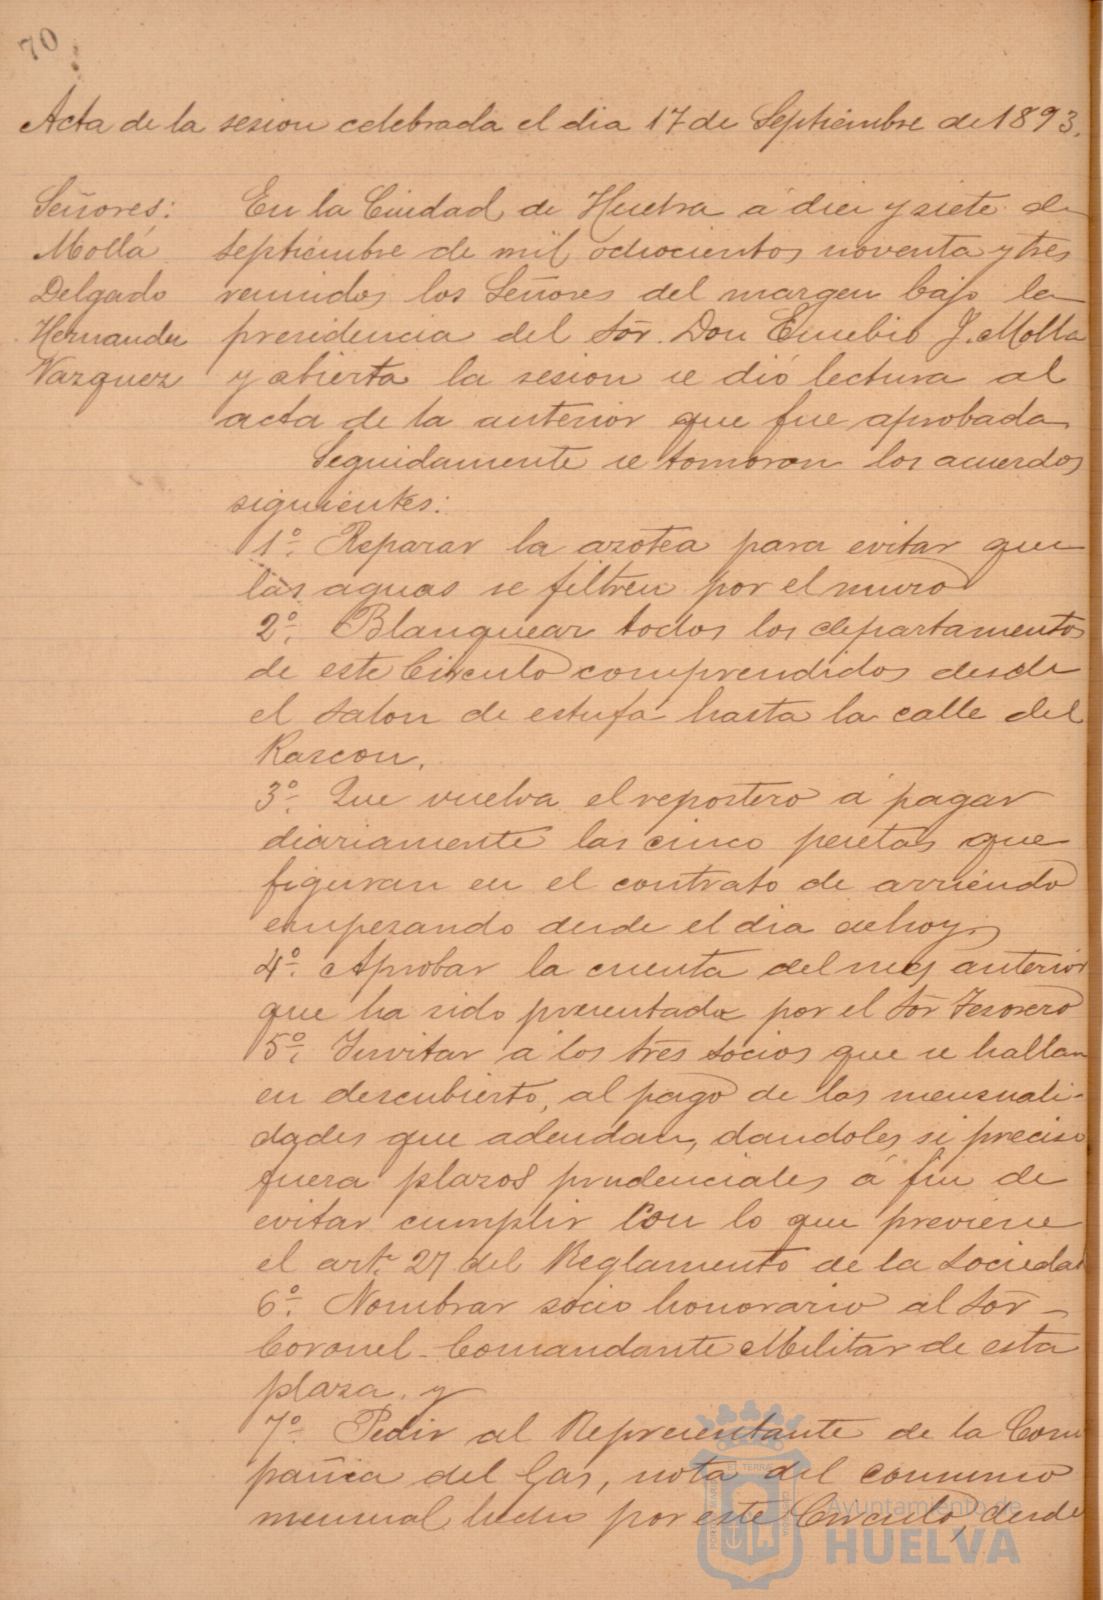 70
Acta de la sesion celebrada el dia 17 de Septiembre de 1893.
Señores:
Mollá
Delgado
Hernandez
Vazquez
En la Ciudad de Huelva á diez y siete de
septiembre de mil ochocientos noventa y tres
reunidos los Señores del margen bajo la
presidencia del Sor. Don Eusebio J. Molla
y abierta la sesion se dió lectura al
acta de la anterior que fue aprobada
Seguidamente se tomaron los acuerdos
siguientes:
1º. Reparar la azotea para evitar que
las aguas se filtren por el muro
2º. Blanquear todos los departamentos
de este Circulo comprendidos desde
el salon de estufa hasta la calle del
Rascon.
3º. Que vuelva el repostero á pagar
diariamente las cinco pesetas que
figuran en el contrato de arriendo
empezando desde el dia de hoy
4º. Aprobar la cuenta del mes anterior
que ha sido presentada por el Sor Tesorero
5º. Invitar á los tres socios que se hallan
en descubierto, al pago de las mensuali-
dades que adeudan, dandoles si preciso
fuera plazos prudenciales á fin de
evitar cumplir con lo que previene
el art. 27 del Reglamento de la Sociedad
6º. Nombrar socio honorario al Sor
Coronel-Comandante Militar de esta
plaza, y
7º. Pedir al Representante de la Com
pañia del Gas, nota del consumo
mensual hecho por este Circulo, desde
Ayuntamiento de
HUELVA